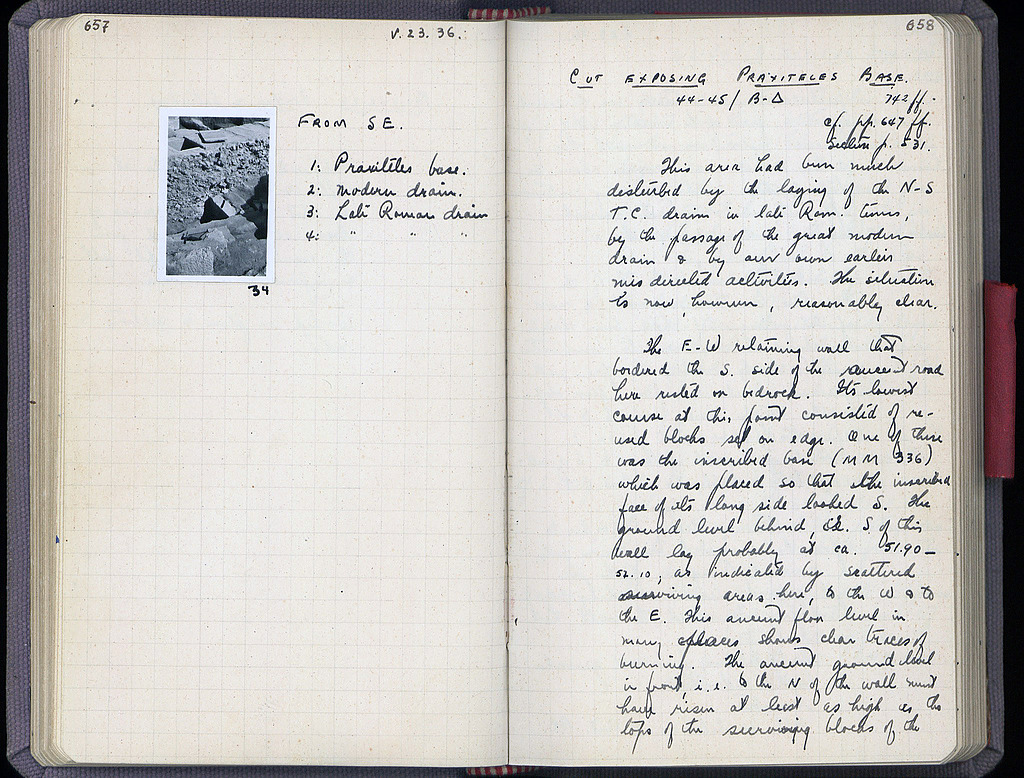 657
V. 23. 36.
FROM SE.
1: Praxiteles base.
2: modern drain.
3: Late Roman drain
4: " " "
34
658
CUT EXPOSING PRAXITELES BASE.
44-45/ B-Δ 742 ff.
cf. pp. 647 ff.
Section p. 531.
This area had been much
disturbed by the laying of the N-S
T.C. drain in late Rom. times,
by the passage of the great modern
drain & by our own earlier
misdirected activities. The situation
is now, however, reasonably clear.
The E-W retaining wall that
bordered the S. side of the ancient road
here rested on bedrock. Its lowest
course at this point consisted of re-
used blocks set on edge. One of these
was the inscribed base (MM 336)
which was placed so that the inscribed
face of its long side looked S. The
ground level behind, i.e. S. of this
wall lay probably at ca. 51.90 –
52.10, as indicated by scattered
surviving areas here, to the W & to
the E. This ancient floor level in
many places shows clear traces of
burning. The ancient ground level
in front, i.e. to the N of the wall must
have risen at least as high as the
tops of the surviving blocks of the